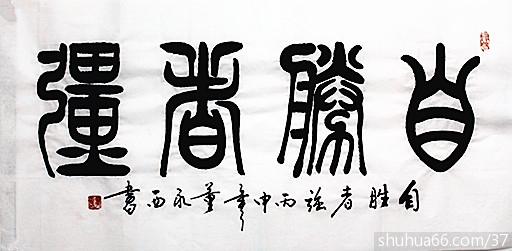 自勝者彊
自胜者强丙申年董永西書
shuhua66.com/37